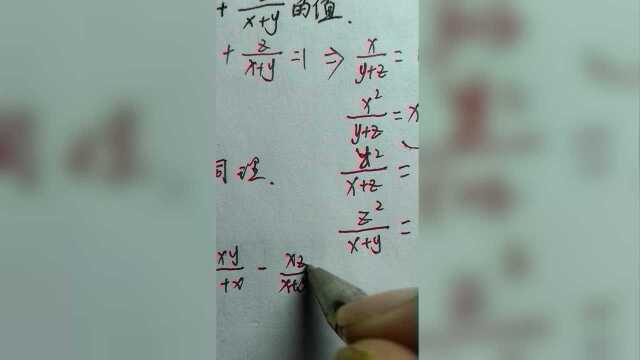 + \frac{z}{x+y} 的值.
+ \frac{z}{x+y} =1 ⇒ \frac{x}{y+z} =
\frac{x^2}{y+z} = x
同理. \frac{y^2}{x+z} =
\frac{z^2}{x+y} =
\frac{xy}{+z} - \frac{xz}{x+}